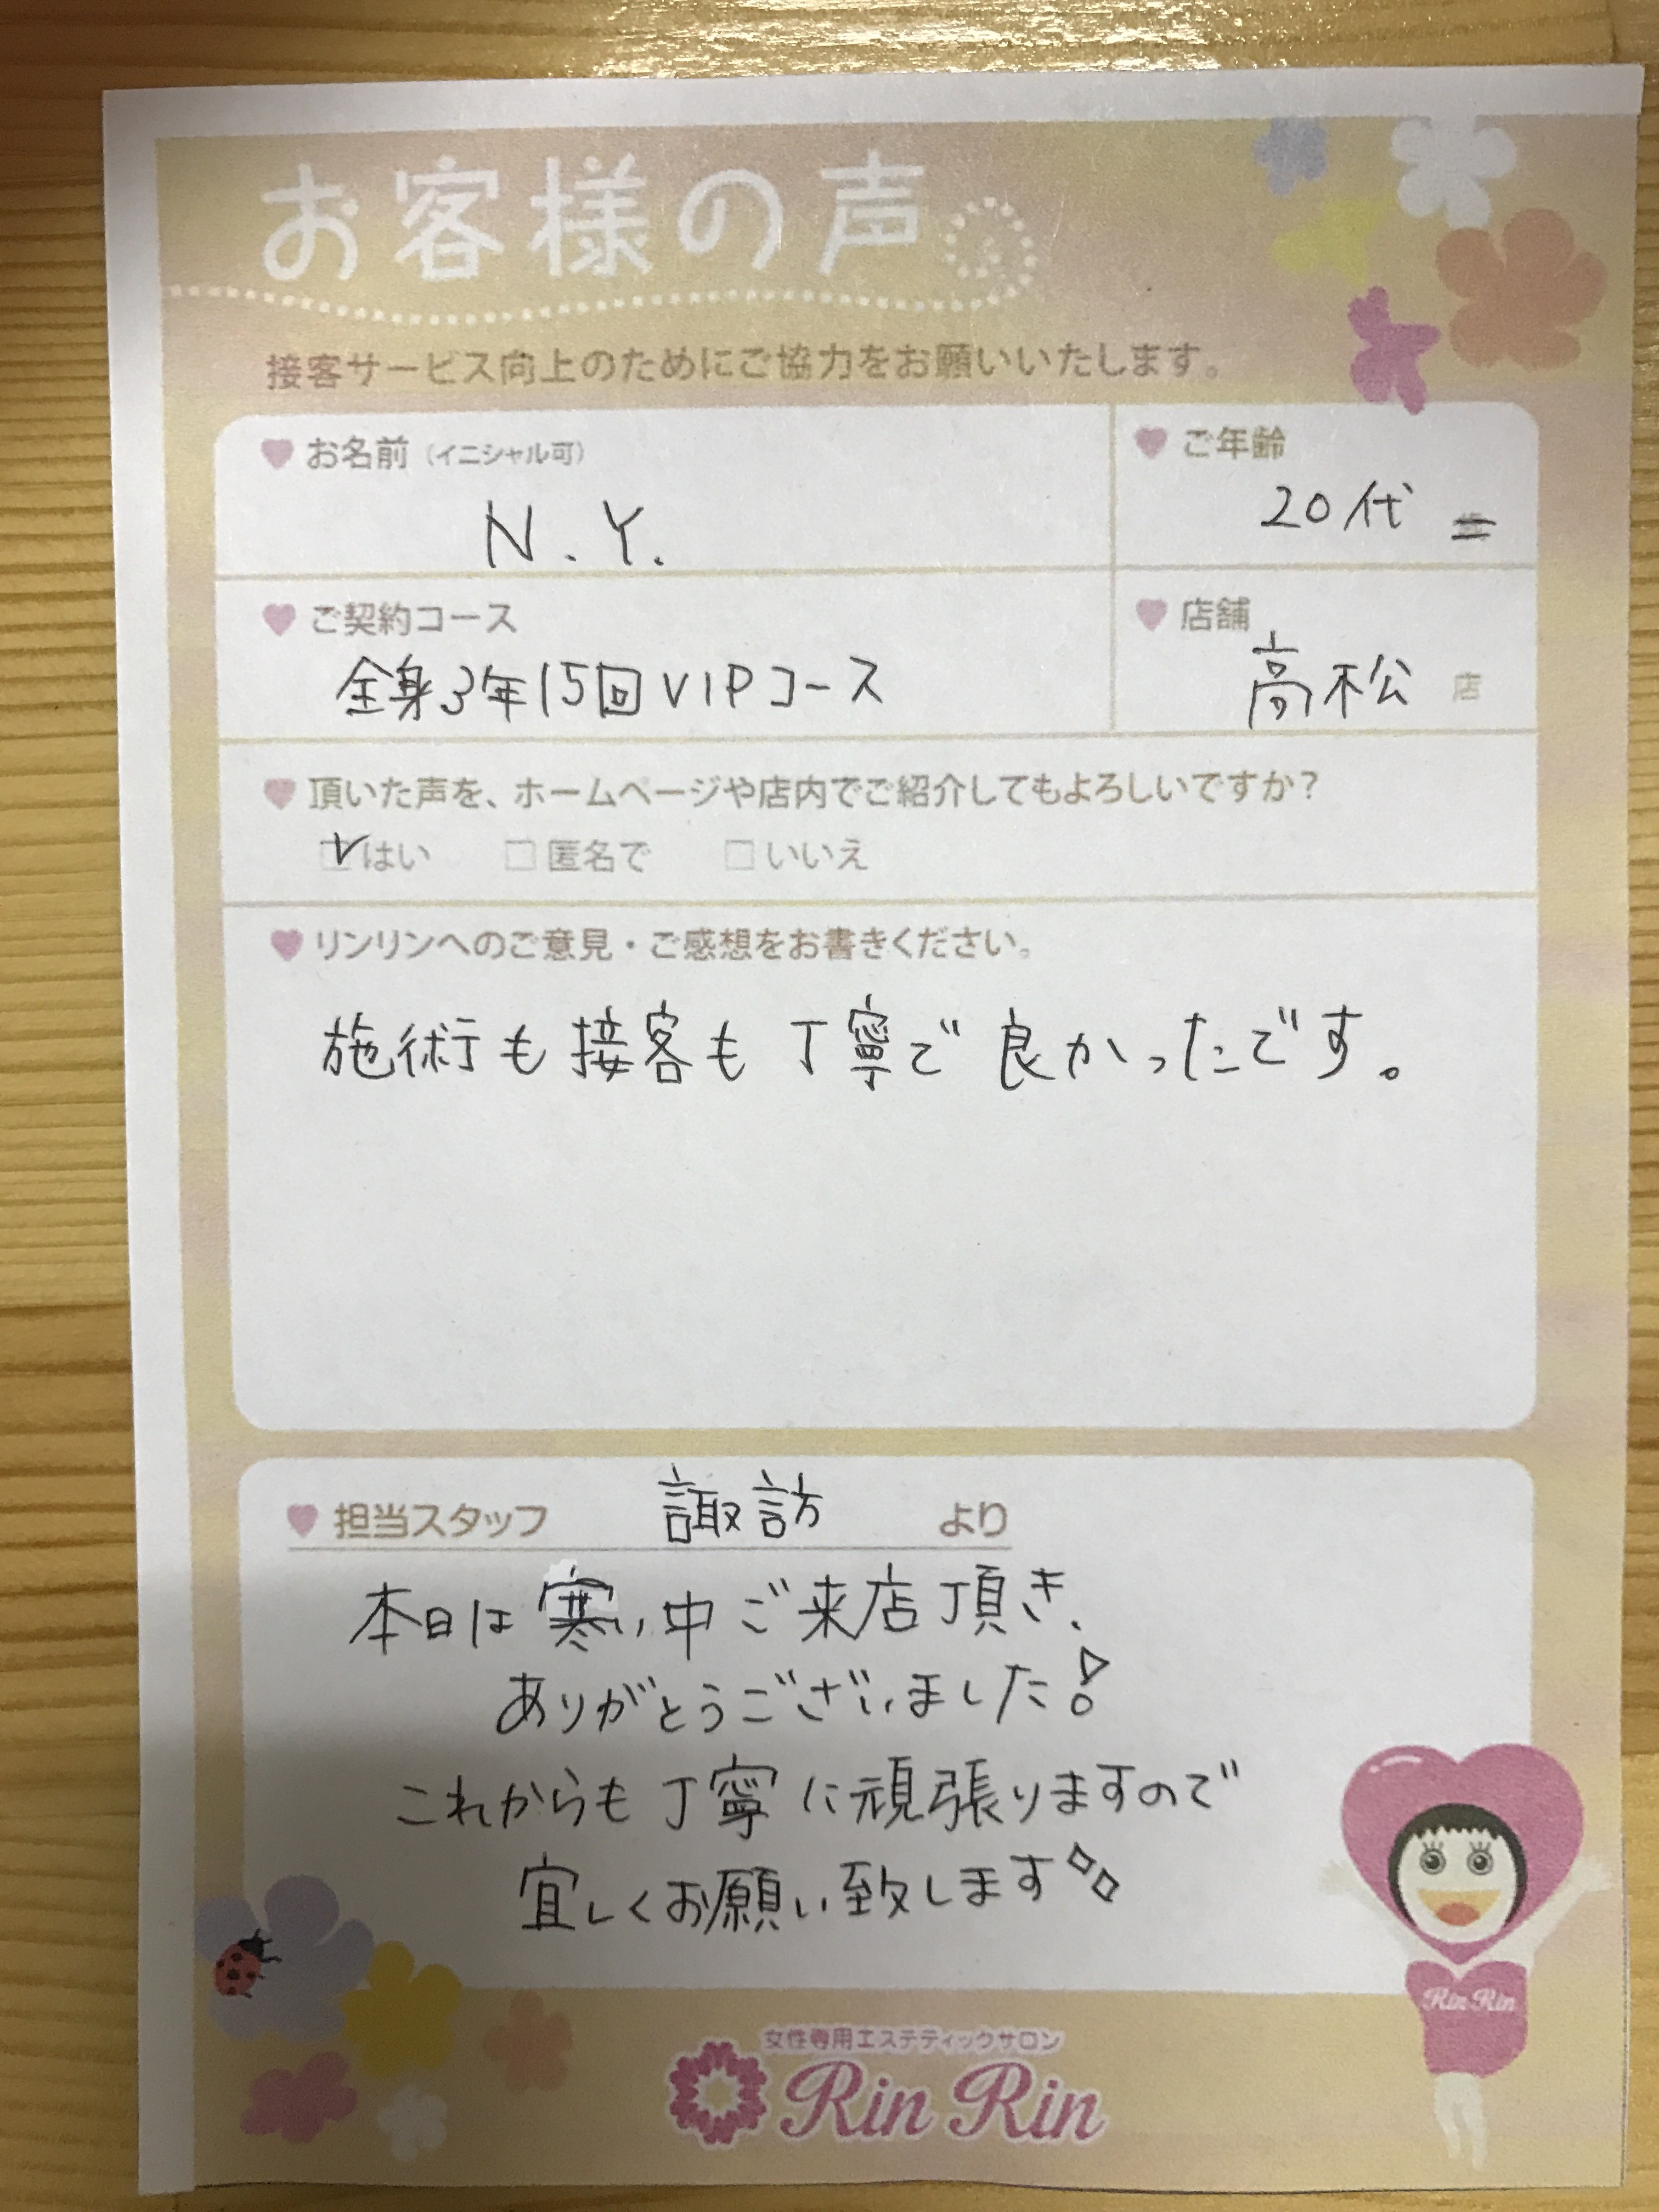 お客様の声
接客サービス向上のためにご協力をお願いいたします。
お名前（イニシャル可）
N.Y.
ご年齢
20代
ご契約コース
全身3年15回VIPコース
店舗
高松 店
頂いた声を、ホームページや店内でご紹介してもよろしいですか？
はい 匿名で いいえ
リンリンへのご意見・ご感想をお書きください。
施術も接客も丁寧で良かったです。
担当スタッフ 諏訪 より
本日は寒い中ご来店頂き、
ありがとうございました！
これからも丁寧に頑張りますので
宜しくお願い致します
Rin Rin
女性専用エステティックサロン
Rin Rin